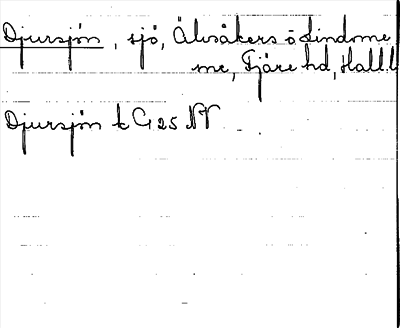 Djursjön, sjö, Älvsåkers o Lindome
sne, Fjäre hd, Hall
Djursjön tc G 25 NV